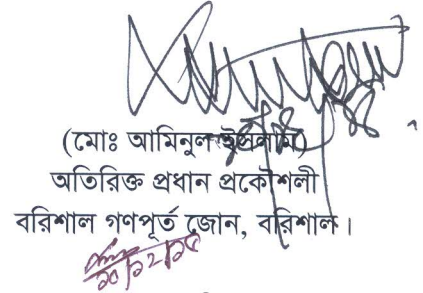 (মোঃ আমিনুল ইসলাম)
অতিরিক্ত প্রধান প্রকৌশলী
বরিশাল গণপূর্ত জোন, বরিশাল।